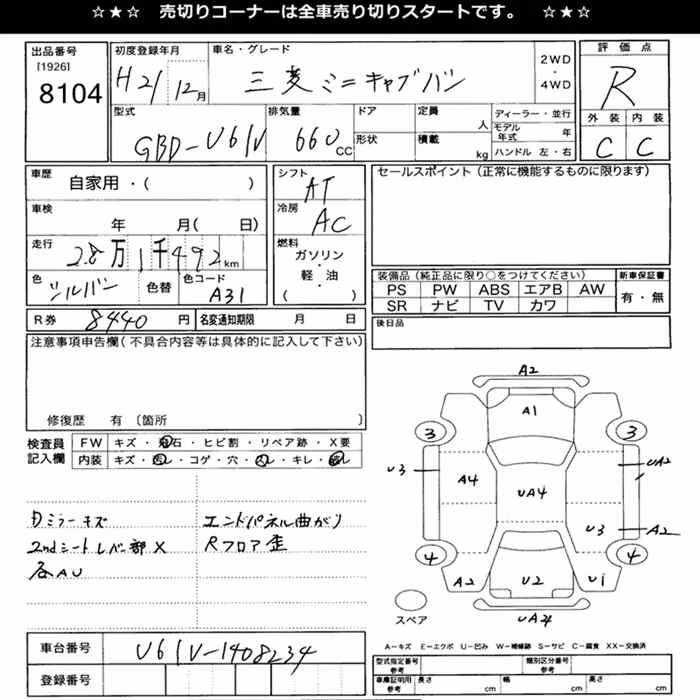 ☆★☆ 売切りコーナーは全車売り切りスタートです。 ☆★☆
出品番号 初度登録年月 車名・グレード 2WD・4WD 評価点
[1926]
8104 H21/12月 三菱ミニキャブバン R
型式 排気量 ドア 定員 人 ディーラー・並行 外装 内装
GBD-U61V 660CC 形状 積載 kg モデル年式 年 C C
ハンドル 左・右
車歴 シフト セールスポイント(正常に機能するものに限ります)
自家用・( ) AT
車検 冷房
年 月( 日) AC
走行 燃料
2.8万1千492km ガソリン・軽・油
( )
色 色替 色コード
シルバー A31
装備品(純正品に限り○をつけてください) 新車保証書
PS PW ABS エアB AW 有・無
SR ナビ TV カワ
R券 8440円 名変通知期限 月 日 後日品
注意事項申告欄(不具合内容等は具体的に記入して下さい)
修復歴 有 〔箇所 〕
検査員記入欄 FW キズ・飛石・ヒビ割・リペア跡・X要
内装 キズ・汚レ・コゲ・穴・スレ・キレ・
Dミラーキズ エンドパネル曲がり
2ndシートレバー部X Rフロア歪
各AU
A2
A1
3 3
U3 A4 UA4 UA2
U3 A2
4 4
A2 U2 U1
UA4
スペア
車台番号 U61V-1408234
登録番号
A-キズ E-エクボ U-凹み W-補修跡 S-サビ C-腐食 XX-交換済
型式指定番号 参考 類別区分番号 参考
車庫証明用 参考 長さ cm 幅 cm 高さ cm